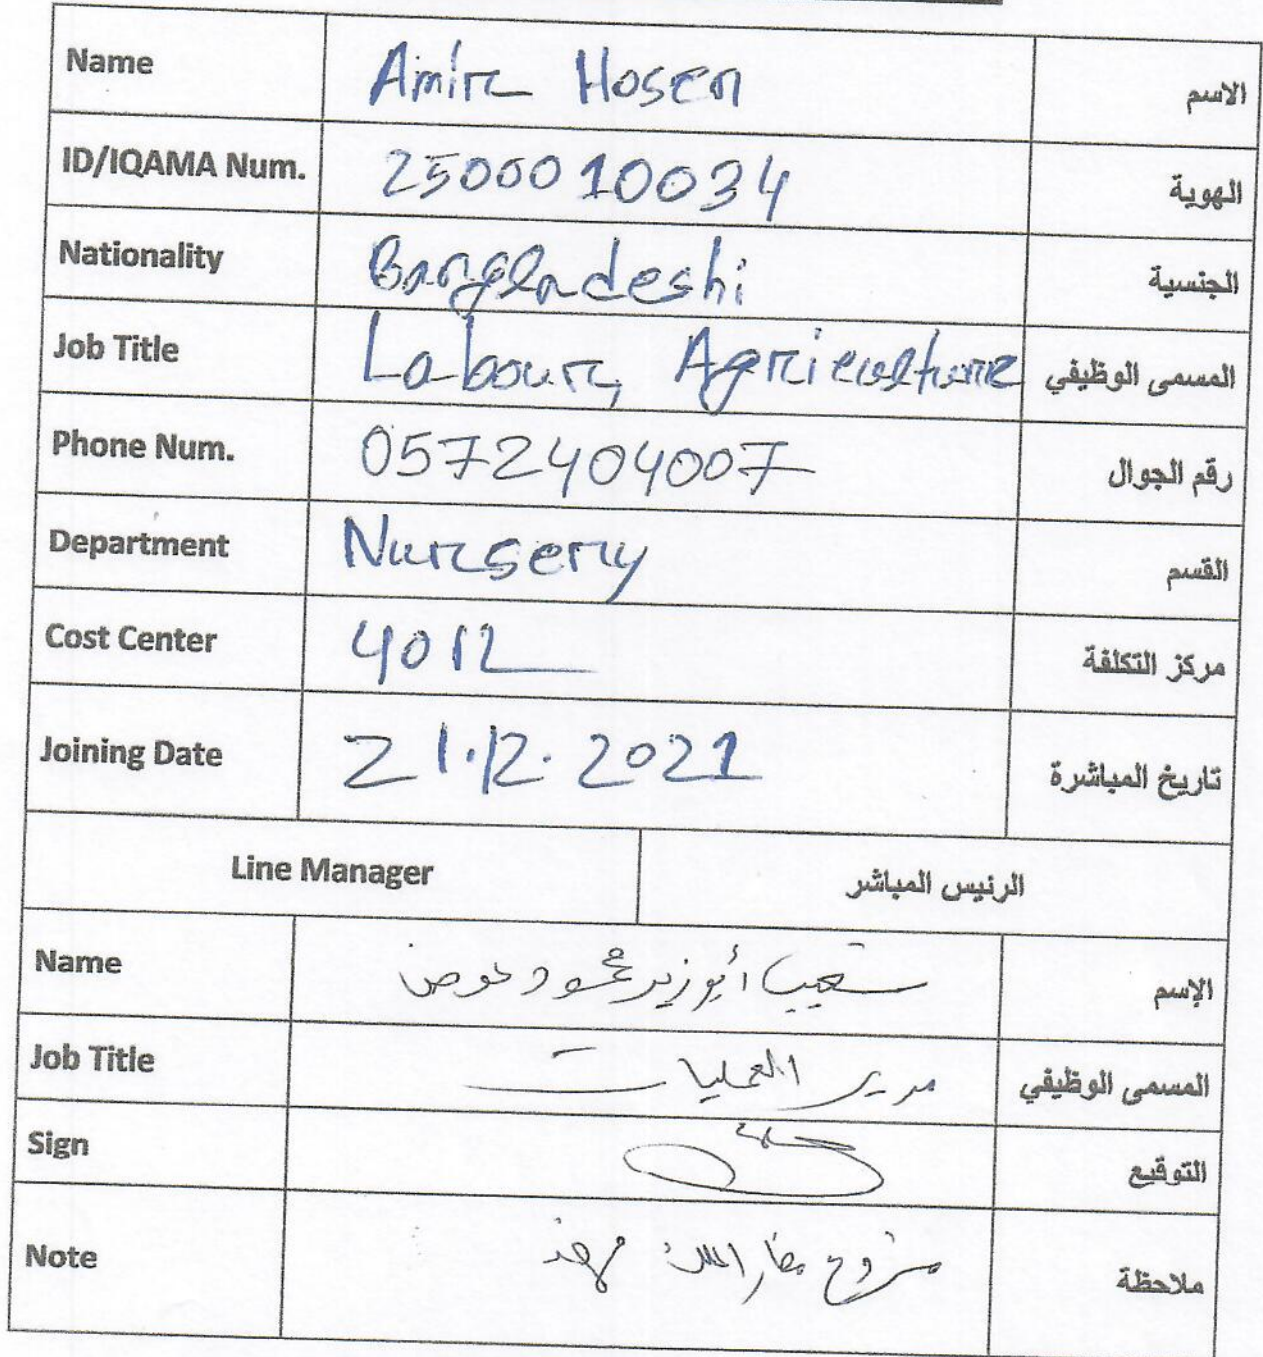 Name Amir Hosen الاسم
ID/IQAMA Num. 2500010034 الهوية
Nationality Bangladeshi الجنسية
Job Title Labour, Agriculture المسمى الوظيفي
Phone Num. 0572404007 رقم الجوال
Department Nursery القسم
Cost Center 4012 مركز التكلفة
Joining Date 21.12.2021 تاريخ المباشرة
Line Manager الرئيس المباشر
Name شعيب أبوزيد محمود عوض الإسم
Job Title مدير العمليات المسمى الوظيفي
Sign التوقيع
Note مشروع مطار الملك فهد ملاحظة